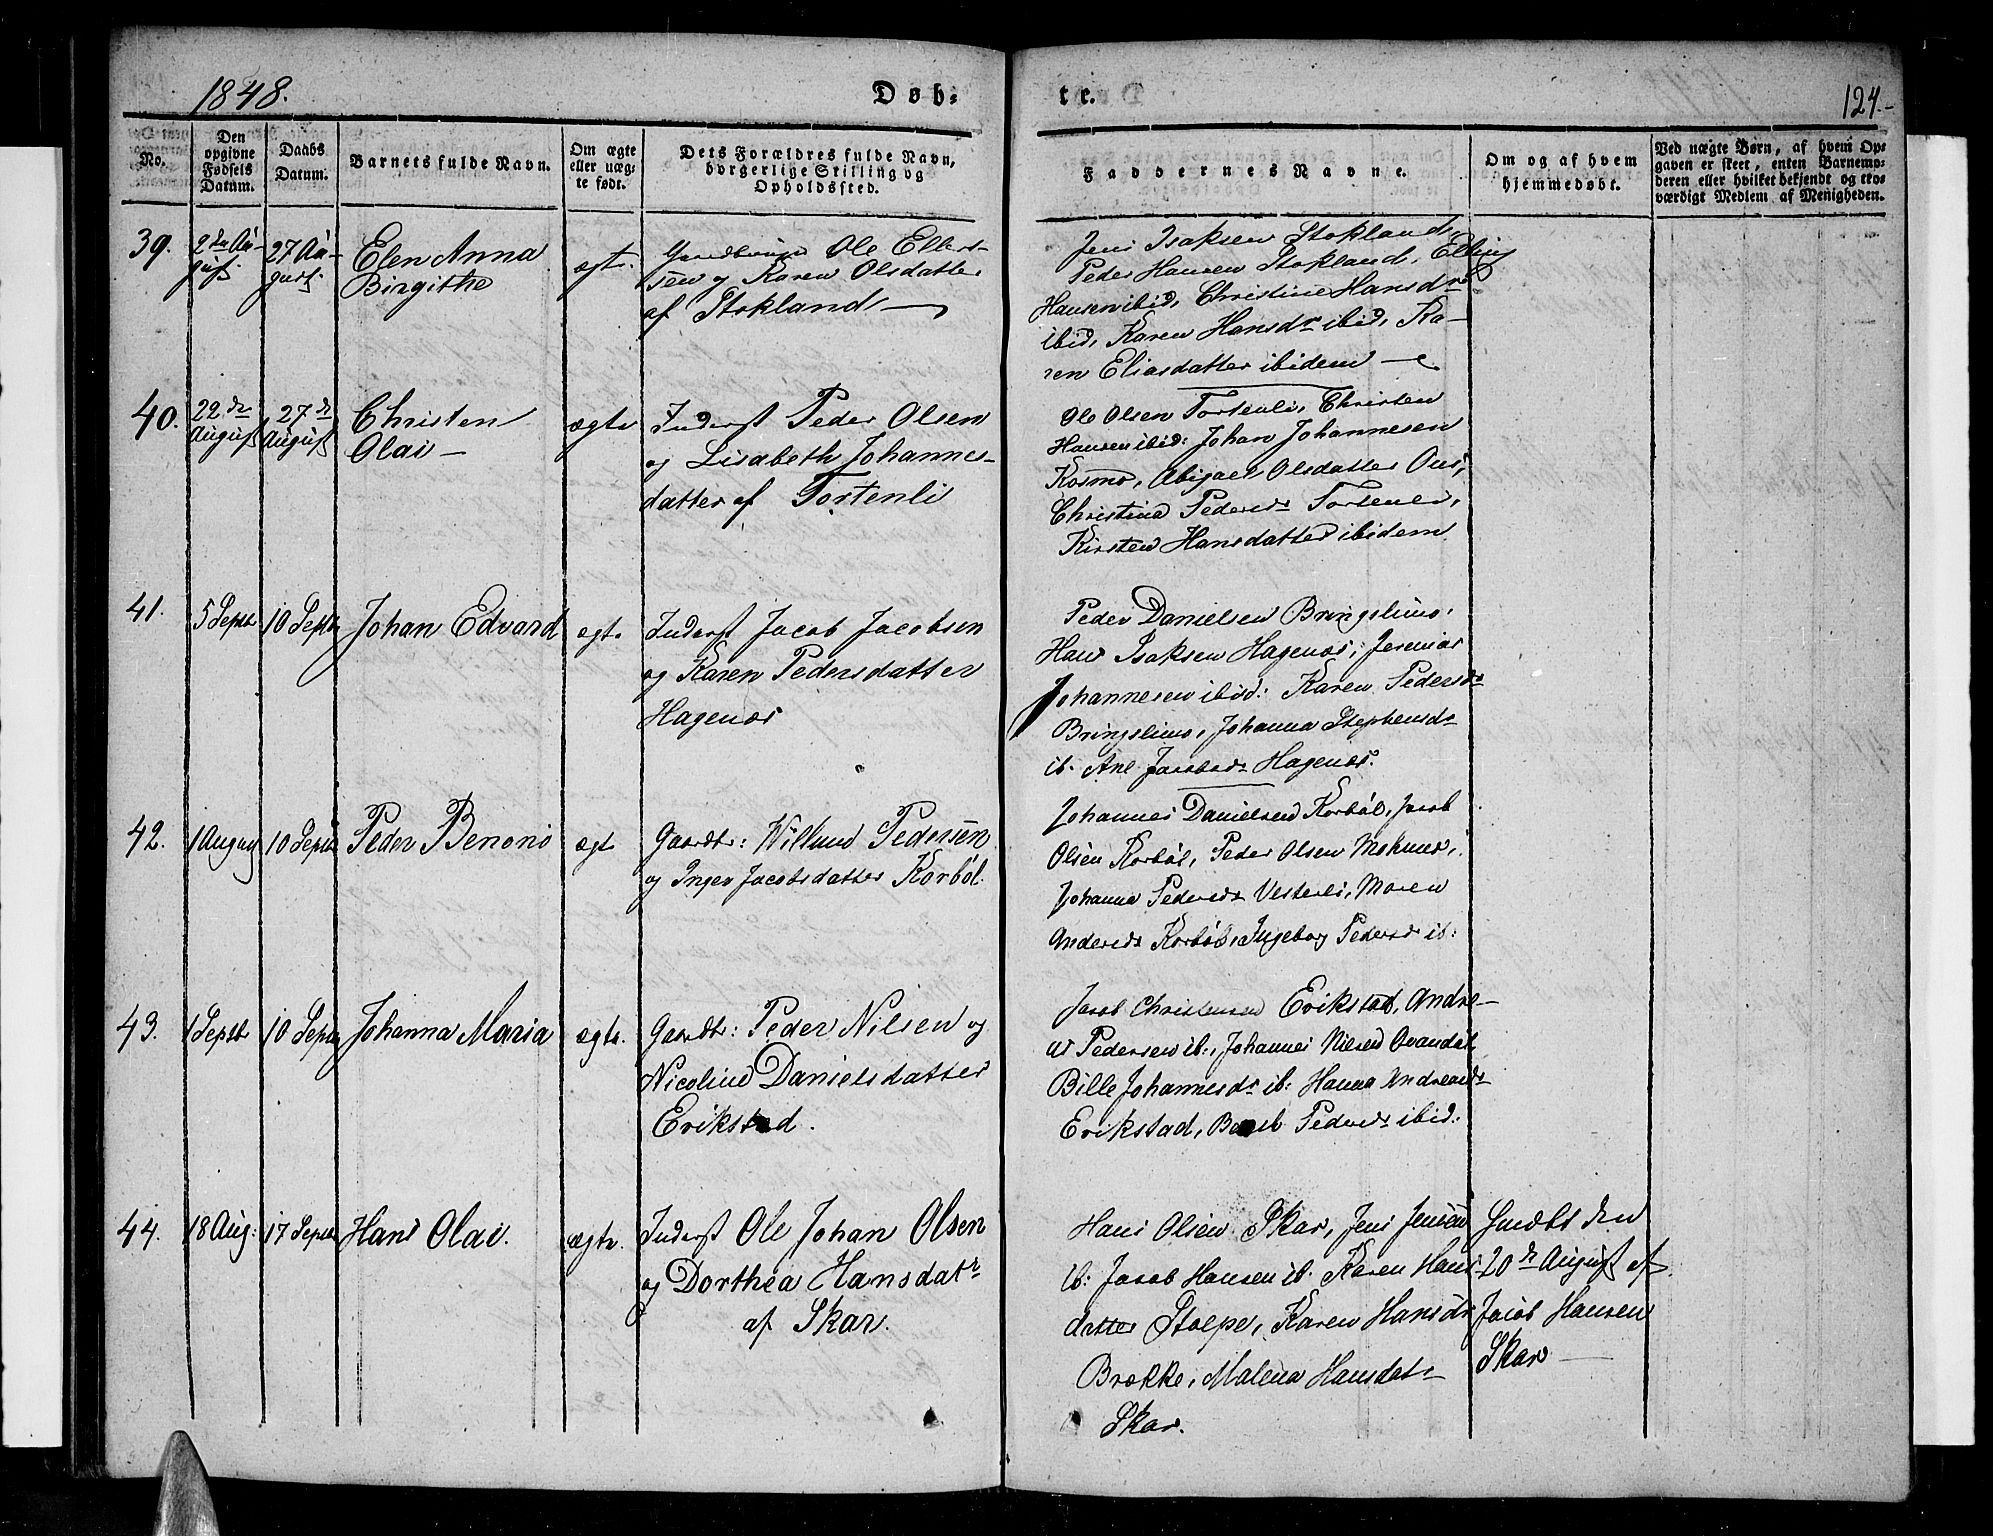 1848.
Døb-
te.
124.
No.
Den opgivne Fødsels Datum.
Daabs Datum.
Barnets fulde Navn.
Om ægte eller uægte født.
Dets Forældres fulde Navn, borgerlige Stilling og Opholdssted.
Faddernes Navne.
Om og af hvem hjemmedøbt.
Ved uægte Børn, af hvem Opgaven er skeet, enten Barnemoderen eller hvilket bekjendt og troværdigt Medlem af Menigheden.
39.
2den August
27 August
Elen Anna
Birgithe
ægte
Ole Ellers-
sen og Karen Olsdatter
af Stokland
Jens Isaksen Stokland,
Peder Hansen Stokland, Elling
Hansen ibid, Christine Hansdr
ibid, Karen Hansdr ibid, Ka-
ren Eliasdatter ibidem
40.
22de August
27de August
Christen
Olai
ægte
Inderst Peder Olsen
og Lisabeth Johannes-
datter af Tortenli
Ole Olsen Tortenli, Christen
Hansen ibid: Johan Johannesen
Kosmo, Abigael Olsdatter Ous,
Christina Pedersdr Tortenli,
Kirsten Hansdatter ibidem
41.
5 Septbr
10 Septbr
Johan Edvard
ægte
Inderst Jacob Jacobsen
og Karen Pedersdatter
Hagenæs
Peder Danielsen Bringslimo,
Hans Isaksen Hagenæs, Jeremias
Johannesen ibid: Karen Pedersdr
Bringslimo, Johanna Stephensdr
ib. Ane Jacobsdr Hagenæs.
42.
1 August
10 Septbr
Peder Benoni
ægte
Gaardbr: Willund Pedersen
og Inger Jacobsdatter Korbøl.
Johannes Danielsen Korbøl, Jacob
Olsen Korbøl, Peder Olsen
Johanna Pedersdr Vesterli, Maren
Andersdr Korbøl, Ingeborg Pedersdr ib:
43.
1 Septbr
10 Septbr
Johanna Maria
ægte.
Gaardbr: Peder Nilsen og
Nicoline Danielsdatter
Erikstad.
Jacob Christensen Erikstad, Andre-
as Pedersen ib:, Johannes Nilsen
Bille Johannesdr ib: Hanna Andreasdr
Erikstad, Pedersdr ibid:
44.
18 Aug:
17 Septbr
Hans Olai.
ægte.
Inderst Ole Johan Olsen
og Dorthea Hansdatr
af Skar.
Hans Olsen Skar, Jens Jensen
ib: Jacob Hansen ib. Karen Hans
datter Stolpe, Karen Hansdr
Brække, Malena Hansdatr
Skar.
Hmdbt den
20de August af
Jacob Hansen
Skar